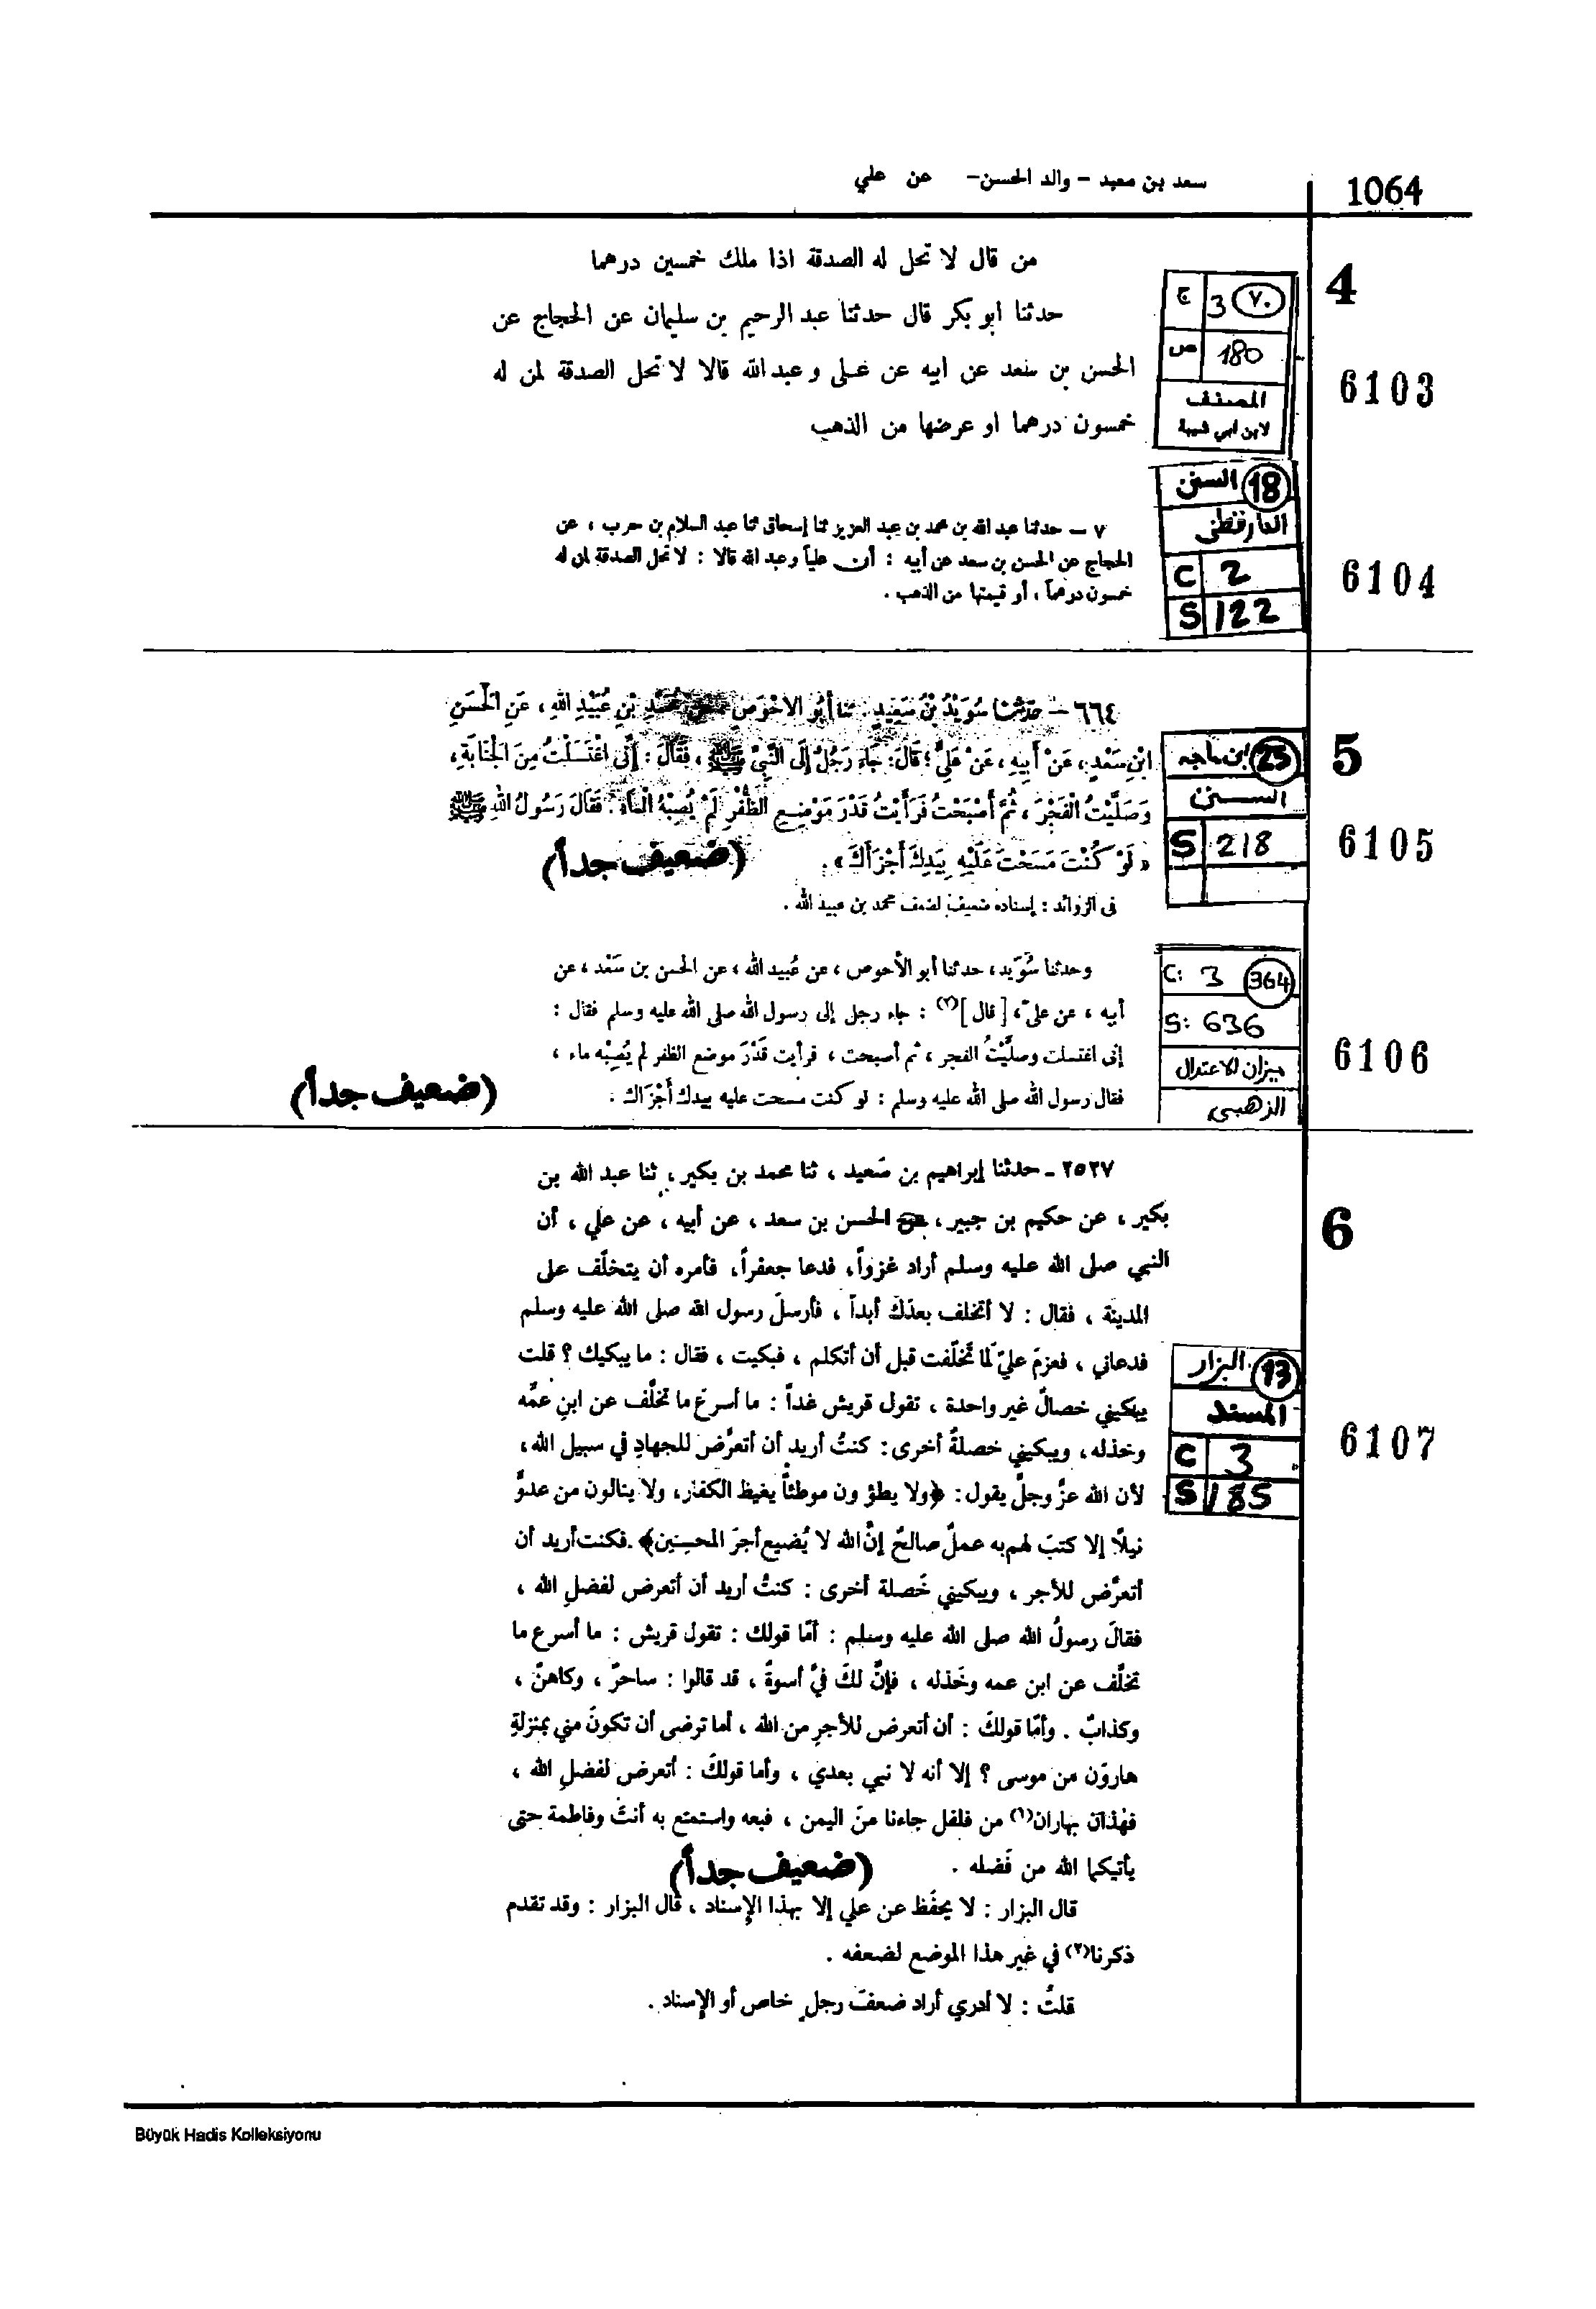 1064
سعد بن معبد - والد الحسن - عن علي
4
ج 3 ٧٠
ص 180
المصنف
لابن ابي شيبة
6103
من قال لا تحل له الصدقة اذا ملك خمسين درهما
حدثنا ابو بكر قال حدثنا عبد الرحيم بن سليمان عن الحجاج عن
الحسن بن سعد عن ابيه عن على و عبد الله قالا لا تحل الصدقة لمن له
خمسون درهما او عرضها من الذهب
السنن 18
الدارقطني
C 2
S 122
6104
٧ - حدثنا عبد الله بن محمد بن عبد العزيز ثنا إسحاق ثنا عبد السلام بن حرب ، عن
الحجاج عن الحسن بن سعد عن أبيه : أن علياً وعبد الله قالا : لا تحل الصدقة لمن له
خمسون درهماً ، أو قيمتها من الذهب .
5
ابن ماجه 25
السنن
S 218
6105
٦٦٤ - حَدَّثَنا سُوَيْدُ بْنُ سَعِيدٍ . ثنا أَبُو الأَحْوَصِ عَنْ مُحَمَّدِ بْنِ عُبَيْدِ اللهِ ، عَنِ الْحَسَنِ
ابْنِ سَعْدٍ ، عَنْ أَبِيهِ ، عَنْ عَلِيٍّ ؛ قَالَ: جَاءَ رَجُلٌ إِلَى النَّبِيِّ ﷺ ، فَقَالَ : إِنِّي اغْتَسَلْتُ مِنَ الْجَنَابَةِ ،
وَصَلَّيْتُ الْفَجْرَ ، ثُمَّ أَصْبَحْتُ فَرَأَيْتُ قَدْرَ مَوْضِعِ الظُّفْرِ لَمْ يُصِبْهُ الْمَاءُ . فَقَالَ رَسُولُ اللهِ ﷺ
« لَوْ كُنْتَ مَسَحْتَ عَلَيْهِ بِيَدِكَ أَجْزَأَكَ » . (ضعيف جداً)
فى الزوائد : إسناده ضعيف لضعف محمد بن عبيد الله .
C: 3 364
S: 636
ميزان الاعتدال
الذهبي
6106
وحدثنا سُوَيد، حدثنا أبو الأحوص ، عن عُبيد الله ، عن الحسن بن سَعْد ، عن
أبيه ، عن علىّ، [ قال ](٢) : جاء رجل إلى رسول الله صلى الله عليه وسلم فقال :
إنى اغتسلت وصلَّيْتُ الفجر ، ثم أصبحت ، فرأيت قَدْرَ موضع الظفر لم يُصِبْه ماء ،
فقال رسول الله صلى الله عليه وسلم : لو كنت مسحت عليه بيدك أَجْزَاك . (ضعيف جداً)
6
البزار 13
المسند
C 3
S 185
6107
٢٥٢٧ - حدثنا إبراهيم بن سَعيد ، ثنا محمد بن بكير ، ثنا عبد الله بن
بكير ، عن حكيم بن جبير ، عن الحسن بن سعد ، عن أبيه ، عن علي ، أن
النبي صلى الله عليه وسلم أراد غزواً، فدعا جعفراً، فأمره أن يتخلّف على
المدينة ، فقال : لا أتخلف بعدَك أبداً ، فأرسلَ رسول الله صلى الله عليه وسلم
فدعاني ، فعزمَ عليّ لَمَا تَخلّفت قبل أن أتكلم ، فبكيت ، فقال : ما يبكيك ؟ قلت
يبكيني خصالٌ غير واحدة ، تقول قريش غداً : ما أسرعَ ما تخلَّف عن ابنِ عمِّه
وخذله، ويبكيني خصلةٌ أخرى : كنتُ أريد أن أتعرَّض للجهادِ في سبيل الله،
لأن الله عزَّ وجلَّ يقول : ﴿ولا يطؤ ون موطئاً يغيظ الكفار، ولا ينالون من عدوٍّ
نيلاً إلا كتبَ لهم به عملٌ صالحٌ إنَّ الله لا يُضيع أجرَ المحسِنِين﴾ .فكنت أريد أن
أتعرَّض للأجر ، ويبكيني خَصلة أخرى : كنتُ أريد أن أتعرض لفضلِ الله ،
فقالَ رسولُ الله صلى الله عليه وسلم : أمّا قولك : تقول قريش : ما أسرع ما
تخلَّف عن ابن عمه وخَذله ، فإنَّ لكَ فيَّ أسوةً ، قد قالوا : ساحرٌ ، وكاهنٌ ،
وكذابٌ . وأمّا قولكَ : أن أتعرض للأجرِ من الله ، أما ترضى أن تكونَ مني بمنزلةِ
هارون من موسى ؟ إلا أنه لا نبي بعدي ، وأما قولكَ : أتعرض لفضلِ الله ،
فهٰذان بهاران(١) من فلفل جاءنا منَ اليمن ، فبعه واستمتع به أنتَ وفاطمة حتى
يأتيكما الله من فَضله . (ضعيف جداً)
قال البزار : لا يحفَظ عن علي إلا بهذا الإسناد ، قال البزار : وقد تقدم
ذكرنا(٢) في غير هذا الموضع لضعفه .
قلتُ : لا أدري أراد ضعفَ رجلٍ خاص أو الإسناد .
Büyük Hadis Kolleksiyonu